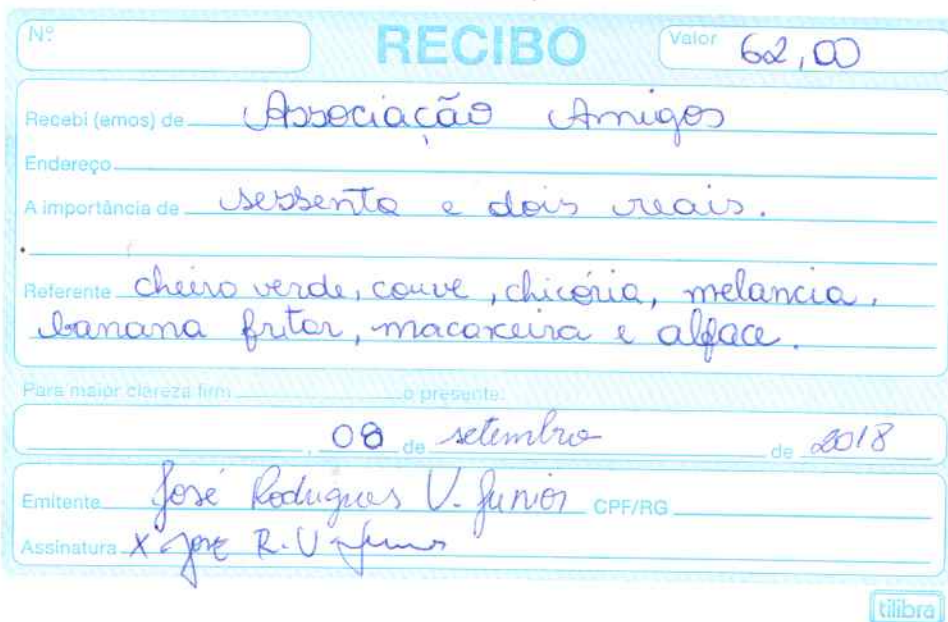 Nº
RECIBO
Valor 62,00
Recebi (emos) de Associação Amigos
Endereço
A importância de sessenta e dois reais.
Referente cheiro verde, couve, chicória, melancia,
banana fritar, macaxeira e alface.
Para maior clareza firm o presente.
08 de setembro de 2018
Emitente José Rodrigues V. Junior CPF/RG
Assinatura X José R. V Junior
tilibra